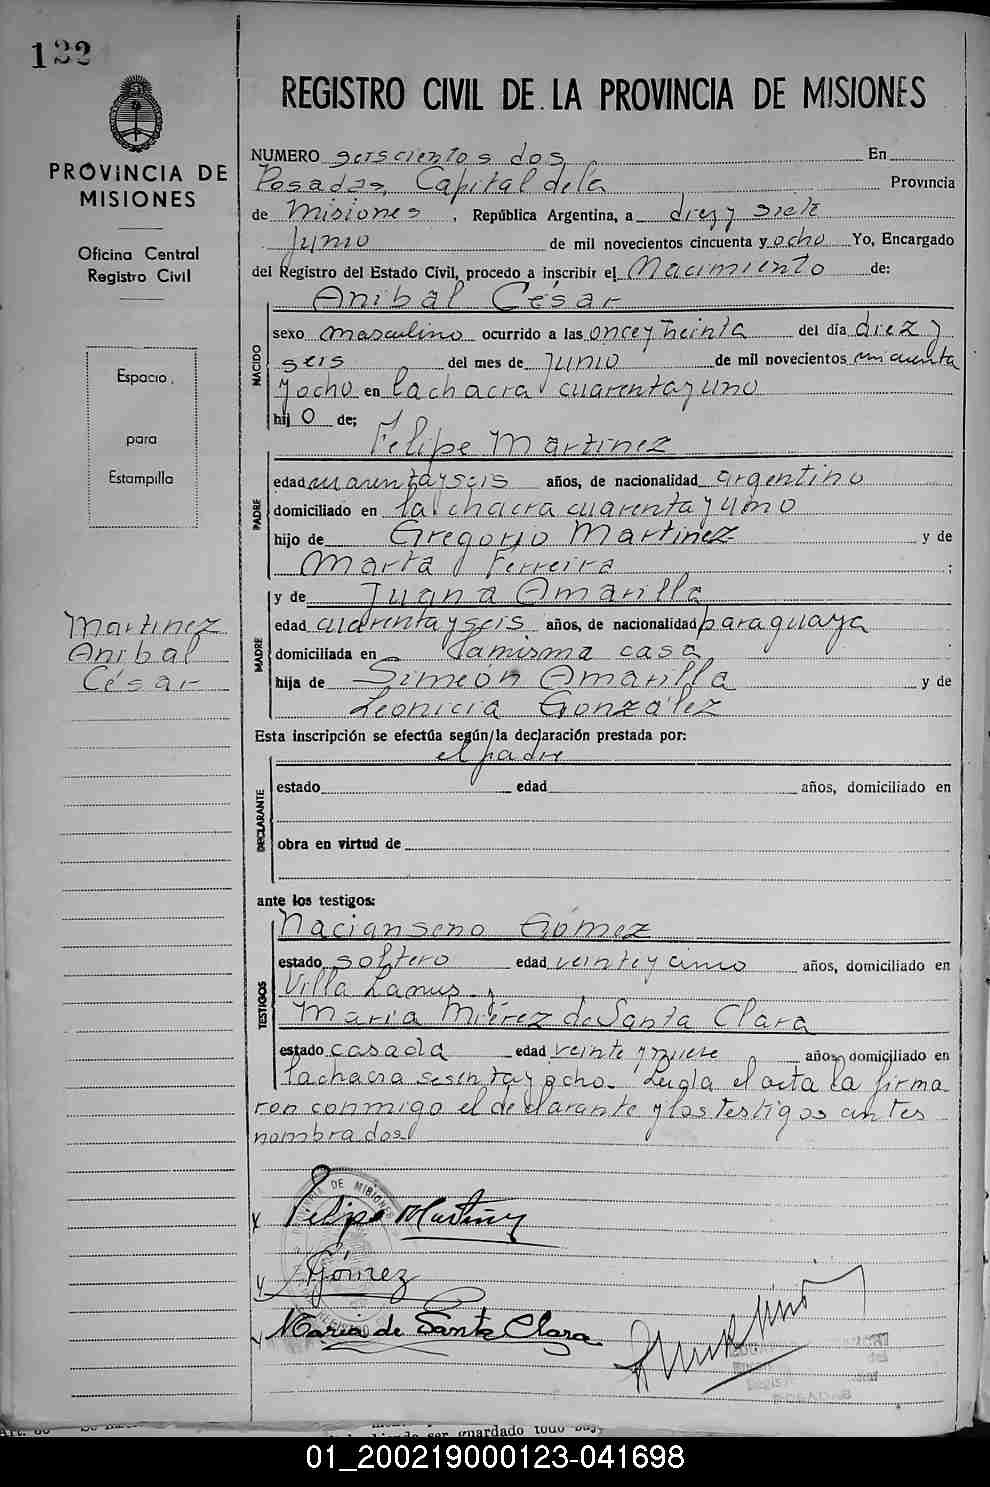 122
PROVINCIA DE
MISIONES
Oficina Central
Registro Civil
Espacio
para
Estampilla
Martinez
Anibal
César
REGISTRO CIVIL DE LA PROVINCIA DE MISIONES
NUMERO seiscientos dos En
Posadas, Capital de la Provincia
de Misiones, República Argentina, a diez y siete
Junio de mil novecientos cincuenta y ocho Yo, Encargado
del Registro del Estado Civil, procedo a inscribir el Nacimiento de:
Anibal César
NACIDO
sexo masculino ocurrido a las once y treinta del día diez y
seis del mes de Junio de mil novecientos cincuenta
y ocho en la chacra cuarenta y uno
hij o de;
Felipe Martinez
PADRE
edad cuarenta y seis años, de nacionalidad argentino
domiciliado en la chacra cuarenta y uno
hijo de Gregorio Martinez y de
Marta Ferreira ;
y de Juana Amarilla
MADRE
edad cuarenta y seis años, de nacionalidad paraguaya
domiciliada en la misma casa
hija de Simeón Amarilla y de
Leonicia González
Esta inscripción se efectúa según la declaración prestada por:
el padre
DECLARANTE
estado edad años, domiciliado en
obra en virtud de
ante los testigos:
Nacianseno Gómez
TESTIGOS
estado soltero edad veinte y cinco años, domiciliado en
Villa Lanus y
María Miérez de Santa Clara
estado casada edad veinte y nueve años, domiciliado en
la chacra sesenta y ocho. Leida el acta la firma
ron conmigo el declarante y los testigos antes
nombrados
Felipe Martinez
Gómez
Maria de Santa Clara
POSADAS
ser guardado todo
01_200219000123-041698